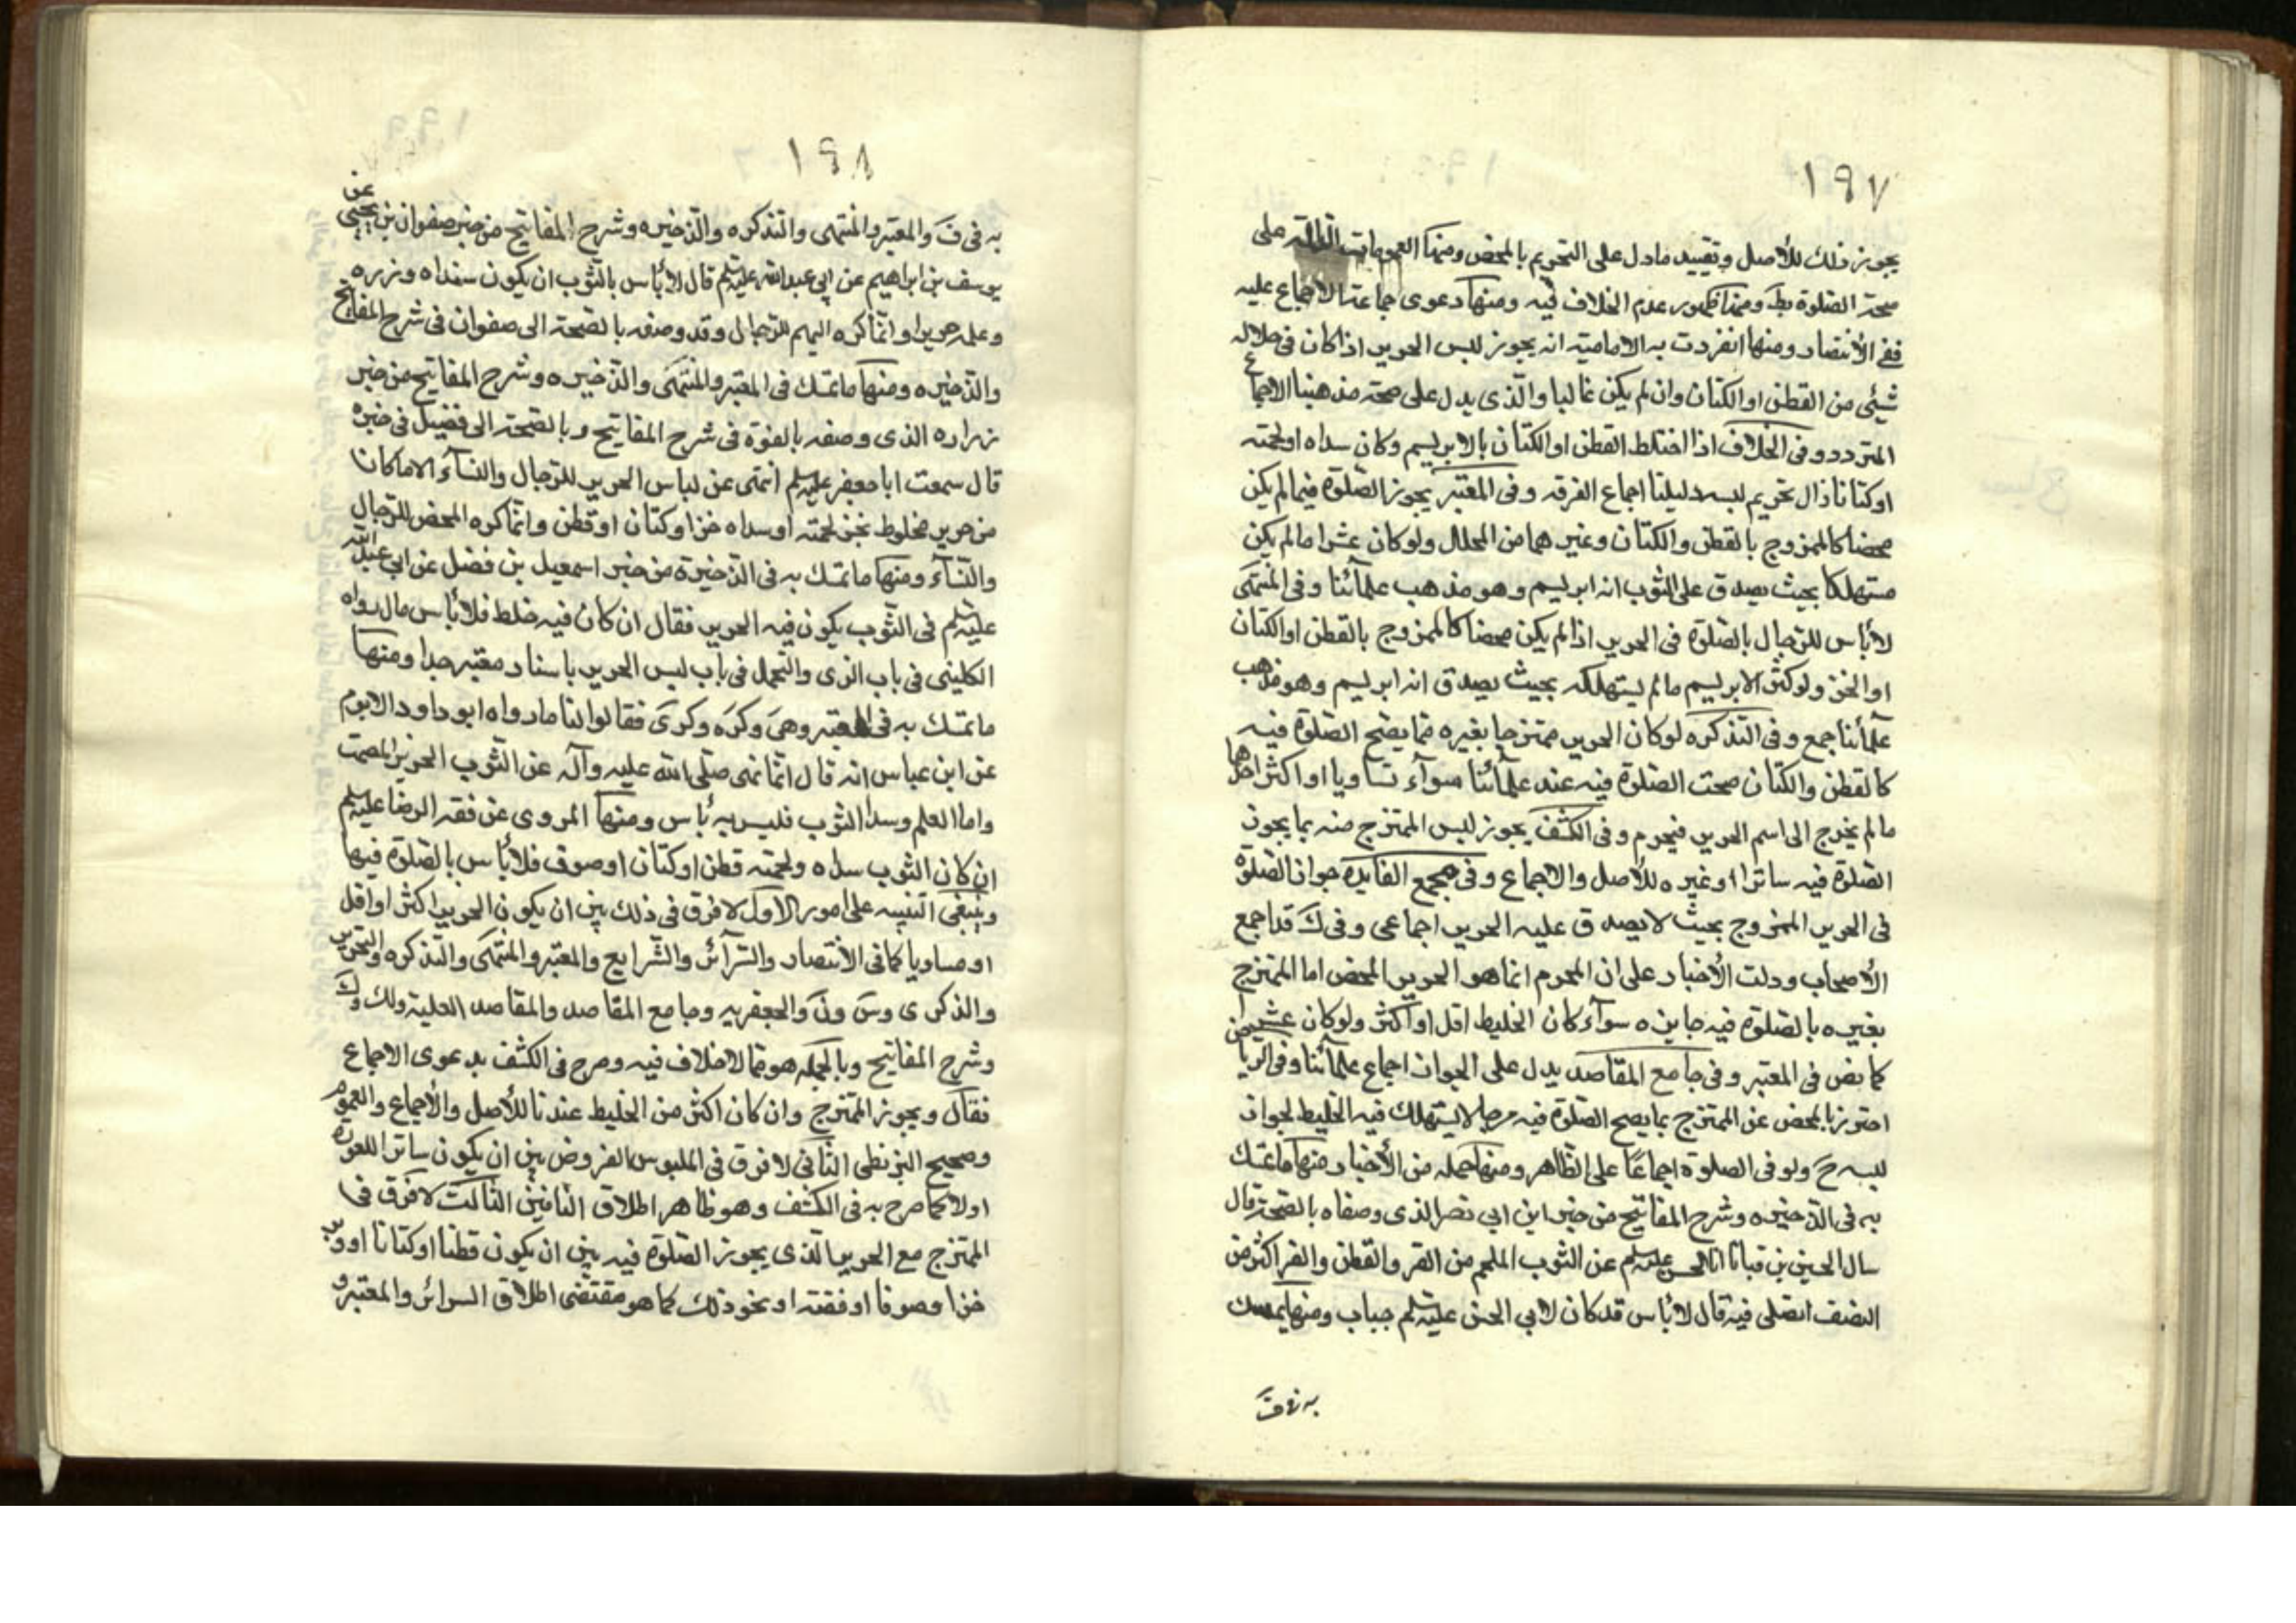 ١٩٧
يجوز ذلك للأصل وتقييد مادل على التحريم بالمحض ومنها العمومات الدالة على
صحة الصلوة بط ومنها ظهور عدم الخلاف فيه ومنها دعوى جماعة الاجماع عليه
ففى الأنتصار ومنها انفردت به الامامية انه يجوز لبس الحرير اذا كان فى خلاله
شيئى من القطن او الكتان وان لم يكن غالبا والذى يدل على صحة مذهبنا الاجماع
المتردد وفى الخلاف اذا اختلط القطن او الكتان بالابريسم وكان سداه او لحمته
او كتانا زال تحريم لبسه دليلنا اجماع الفرقه وفى المعتبر يجوز الصلوة فيما لم يكن
محضا كالممزوج بالقطن والكتان وغيرهما من المحلل ولو كان عشرا ما لم يكن
مستهلكا بحيث يصدق على الثوب انه ابريسم وهو مذهب علمآئنا وفى المنتهى
لا بأس للرجال بالصلوة فى الحرير اذا لم يكن محضا كالممزوج بالقطن او الكتان
او الخز ولو كثر الابريسم ما لم يستهلكه بحيث يصدق انه ابريسم وهو مذهب
علمأئنا جمع وفى التذكره لو كان الحرير ممتزجا بغيره مما يصح الصلوة فيه
كالقطن والكتان صحت الصلوة فيه عند علمآئنا سوآء تساويا او اكثر احدهما
ما لم يخرج الى اسم الحرير فيحرم وفى الكشف يجوز لبس الممتزج منه بما يجوز
الصلوة فيه ساترا او غيره للأصل والاجماع وفى مجمع الفايده جواز الصلوة
فى الحرير الممزوج بحيث لا يصدق عليه الحرير اجماعى وفى ك قد اجمع
الأصحاب ودلت الأخبار على ان المحرم انما هو الحرير المحض اما الممتزج
بغيره بالصلوة فيه جايزه سوآء كان الخليط اقل او اكثر ولو كان عشرا
كما نص فى المعتبر وفى جامع المقاصد يدل على الجواز اجماع علمآئنا وفى الرياض
احترز بالمحض عن الممتزج بما يصح الصلوة فيه مما لا يستهلك فيه الخليط لجواز
لبسه ح ولو فى الصلوة اجماعًا على الظاهر ومنها جمله من الأخبار منها ما تمسك
به فى الذخيره وشرح المفاتيح من خبر ابن ابى نصر الذى وصفاه بالصحة قال
سال الحسين بن قياما ابا الحسن عليه السلم عن الثوب الملحم من القز والقطن والقز اكثر من
النصف ايصلى فيه قال لا بأس قد كان لابي الحسن عليه السلم جباب ومنها تمسك
به فى ف
١٩٨
به فى ف والمعتبر والمنتهى والتذكره والذخيره وشرح المفاتيح من خبر صفوان بن يحيى عن
يوسف بن ابراهيم عن ابى عبدالله عليه السلم قال لا بأس بالثوب ان يكون سداه وزره
وعلمه حريرا وانما كره المبهم للرجال وقد وصفه بالصحة الى صفوان فى شرح المفاتيح
والذخيره ومنها ما تمسك فى المعتبر والمنتهى والذخيره وشرح المفاتيح من خبر
زراره الذى وصفه بالقوة فى شرح المفاتيح وبالصحة الى فضيل فى خبره
قال سمعت ابا جعفر عليه السلم انهى عن لباس الحرير للرجال والنسآء الا ما كان
من حرير مخلوط بخز لحمته او سداه خز او كتان او قطن وانما كره المحض للرجال
والنسآء ومنها ما تمسك به فى الذخيرة من خبر اسمعيل بن فضل عن ابى عبد الله
عليه السلم فى الثوب يكون فيه الحرير فقال ان كان فيه خلط فلا بأس مال رواه
الكلينى فى باب الزى والتجمل فى باب لبس الحرير باسناد معتبر جدا ومنها
ما تمسك به فى المعتبر وهى وكره وكرى فقالوا لنا ما رواه ابو داود الابوم
عن ابن عباس انه قال انما نهى صلى الله عليه وآله عن الثوب الحرير المصمت
واما العلم وسدا الثوب فليس به بأس ومنها المروى عن فقه الرضا عليه السلم
ان كان الثوب سداه ولحمته قطن او كتان او صوف فلا بأس بالصلوة فيها
وينبغى التنبيه على امور الاول لا فرق فى ذلك بين ان يكون الحرير اكثر او اقل
او مساويا كما فى الأنتصار والسرآئر والشرايع والمعتبر والمنتهى والتذكره والتحرير
والذكرى وس ون والجعفريه وجامع المقاصد والمقاصد العلية ولك وك
وشرح المفاتيح وبالجمله هو مما لا خلاف فيه وصرح فى الكشف بدعوى الاجماع
فقال ويجوز الممتزج وان كان اكثر من الخليط عندنا للأصل والأجماع والعموم
وصحيح البزنطى الثانى لا فرق فى الملبوس المفروض بين ان يكون ساترا للعورة
اولا كما صرح به فى الكشف وهو ظاهر اطلاق الثالث لا فرق فى
الممتزج مع الحرير الذى يجوز الصلوة فيه بين ان يكون قطنا او كتانا او وبر
خزا وصوفا او فضة او نحو ذلك كما هو مقتضى اطلاق السرائر والمعتبر و